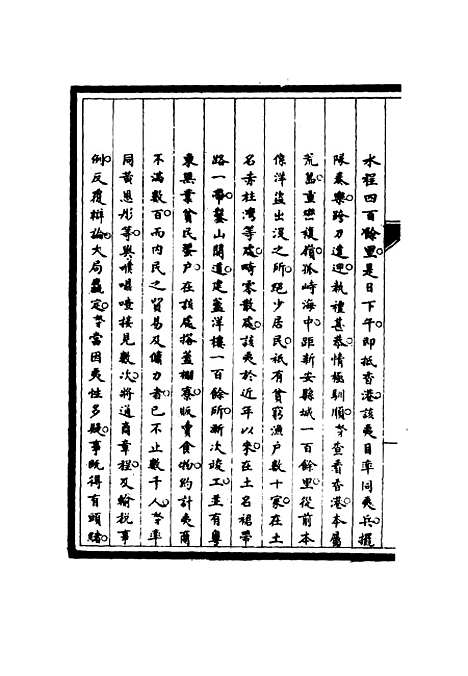 水程四百餘里是日下午即抵香港該夷目率同夷兵擺
隊奏樂跨刀遠迎執禮甚恭情極馴順等查看香港本屬
荒島重巒複嶺孤峙海中距新安縣城一百餘里從前本
係洋盜出沒之所絕少居民祇有貧窮漁戶數十家在土
名赤柱灣等處畸零散處該夷於近年以來在土名裙帶
路一帶鑿山開道建蓋洋樓一百餘所漸次竣工並有粵
東無業貧民蜑戶在該處搭蓋棚寮販賣食物約計夷商
不滿數百而內民之貿易及傭力者已不止數千人等率
同黃恩彤等與噗嘣喳接見數次將通商章程及輸稅事
例反覆辯論大局麤定等當因夷性多疑事既得有頭緒